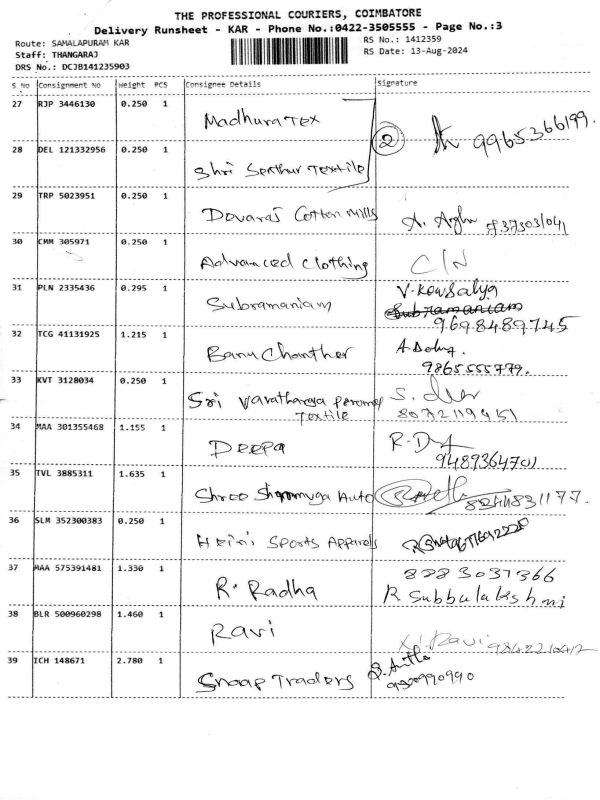 THE PROFESSIONAL COURIERS, COIMBATORE
Delivery Runsheet - KAR - Phone No.:0422-3505555 - Page No.:3
Route: SAMALAPURAM KAR
RS No.: 1412359
Staff: THANGARAJ
RS Date: 13-Aug-2024
DRS No.: DCJB141235903
S No Consignment No Weight PCS Consignee Details Signature
27 RJP 3446130 0.250 1 Madhura Tex
28 DEL 121332956 0.250 1 Shri Senthur Textile ② 9965366199.
29 TRP 5023951 0.250 1 Devaraj Cotton Mills
30 CMM 305971 0.250 1 Advanced Clothing C/N
31 PLN 2335436 0.295 1 Subramaniam V. Kowsalya
Subramaniam
9698489745
32 TCG 41131925 1.215 1 Banu Chanther
9865555779.
33 KVT 3128034 0.250 1 Sri Varatharaja Perumal
Textile 8072119451
34 MAA 301355468 1.155 1 DEEPA
9489364701
35 TVL 3885311 1.635 1 Shree Shanmuga Auto 8244831177.
36 SLM 352300383 0.250 1 Heini Sports Apparels
37 MAA 575391481 1.330 1 R. Radha 8883037366
R Subbulakshmi
38 BLR 500960298 1.460 1 Ravi Ravi 9842210412
39 ICH 148671 2.780 1 Snaap Traders